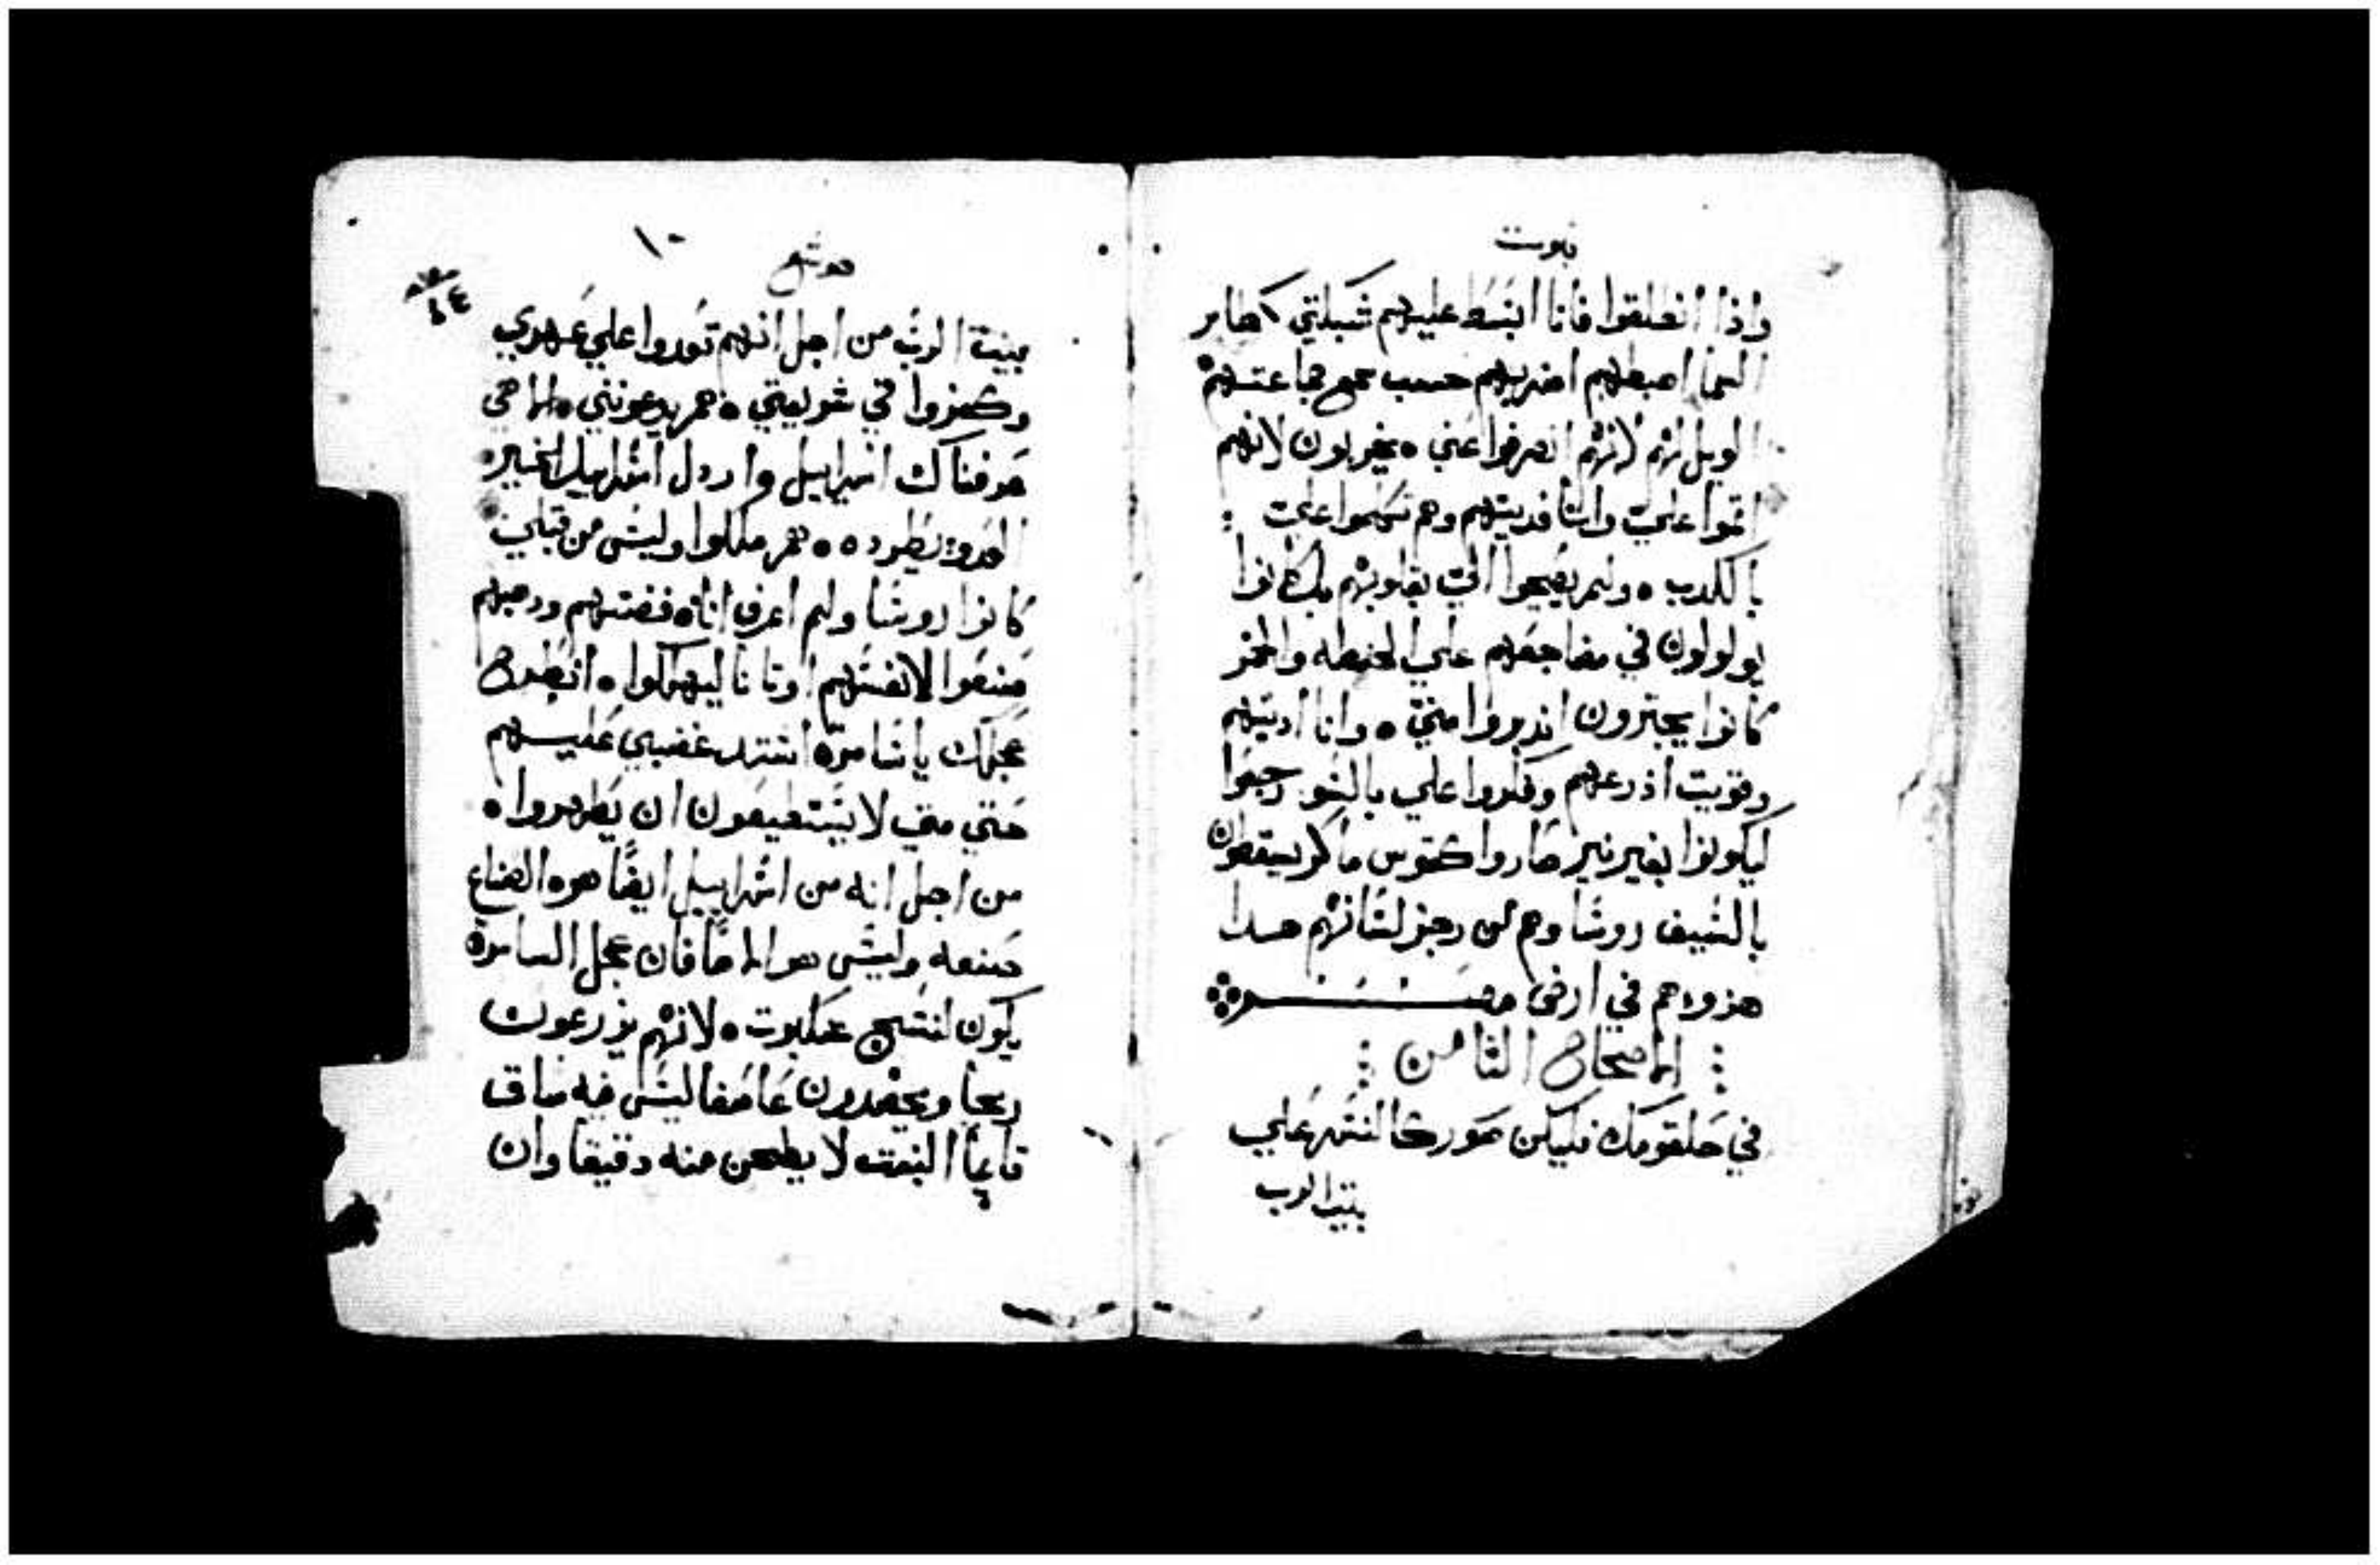 نبوت
واذا انطلقوا فانا ابسط عليهم شبكتي كطاير
السما اهبطهم اضربهم حسب سمع جماعتهم
الويل لهم لانهم انصرفوا عني ه يخربون لانهم
اثموا علي وانا فديتهم وهم تكلموا علي :
بالكدب ه ولم يصيحوا الي بقلوبهم بل كانوا
يولولون في مضاجعهم علي الحنطه والخمر
كانوا يجترون اندبروا مني ه وانا ادبتهم
وقويت اذرعهم وفكروا علي بالسو رجعوا
ليكونوا بغير نير صاروا كقوس ماكر يسقطون
بالسيف روسا وهم من رجز لسانهم هدا
هزوهم في ارض مصر
الاصحاح الثامن
في حلقومك فليكن صور كالنسر علي
بيت الرب
هوشع
١٠
بيت الرب من اجل انهم تعدوا علي عهدي
وكفروا في شريعتي ه هم يدعونني ه الاهي
عرفناك اسراييل وارذل اسراييل الخير ه
العدو يطرده ه هم ملكوا وليس من قبلي
كانوا روسا ولم اعرف اناه فضتهم ودهبهم
صنعوا لانفسهم اوتانا ليهلكوا ه انطرح
عجلك ياسامرة اشتد غضبي عليهم
حتي متي لا يستطيعون ان يطهروا ه
من اجل انه من اسراييل ايضا هوه الصناع
صنعه وليس هو الاها فان عجل السامرة
يكون لنسج عنكبوت ه لانهم يزرعون
ريحا ويحصدون عاصفا ليس فيه ساق
قايما النبت لا يطحن منه دقيقا وان